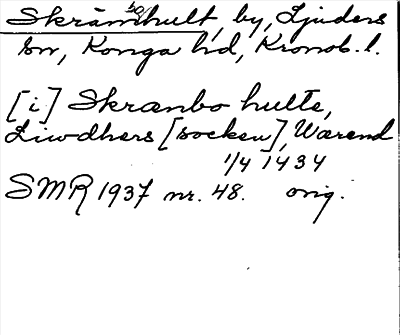 Skråmhult, by, Ljuders
sn, Konga hd, Kronob. l.
[i] Skrænbo hulte,
Liwdhers [socken], Wærend
1/4 1434
SMR 1937 nr. 48. orig.